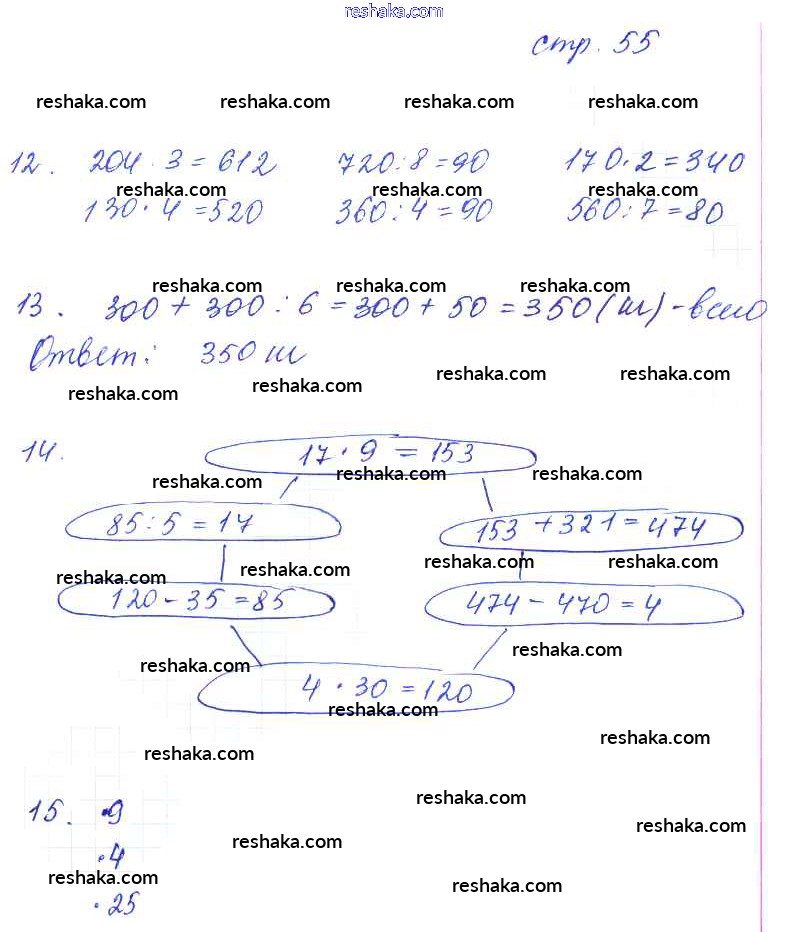 reshaka.com
стр. 55
reshaka.com reshaka.com reshaka.com reshaka.com
12. 204 · 3 = 612 720 : 8 = 90 170 · 2 = 340
reshaka.com reshaka.com reshaka.com
130 · 4 = 520 360 : 4 = 90 560 : 7 = 80
reshaka.com reshaka.com reshaka.com
13. 300 + 300 : 6 = 300 + 50 = 350 (ш) - всего
Ответ: 350 ш
reshaka.com reshaka.com reshaka.com reshaka.com
14. 17 · 9 = 153
reshaka.com reshaka.com reshaka.com
85 : 5 = 17 153 + 321 = 474
reshaka.com reshaka.com reshaka.com reshaka.com
120 - 35 = 85 474 - 470 = 4
reshaka.com reshaka.com
4 · 30 = 120
reshaka.com
reshaka.com reshaka.com
reshaka.com
15. ·9
reshaka.com reshaka.com
·4
reshaka.com reshaka.com
·25